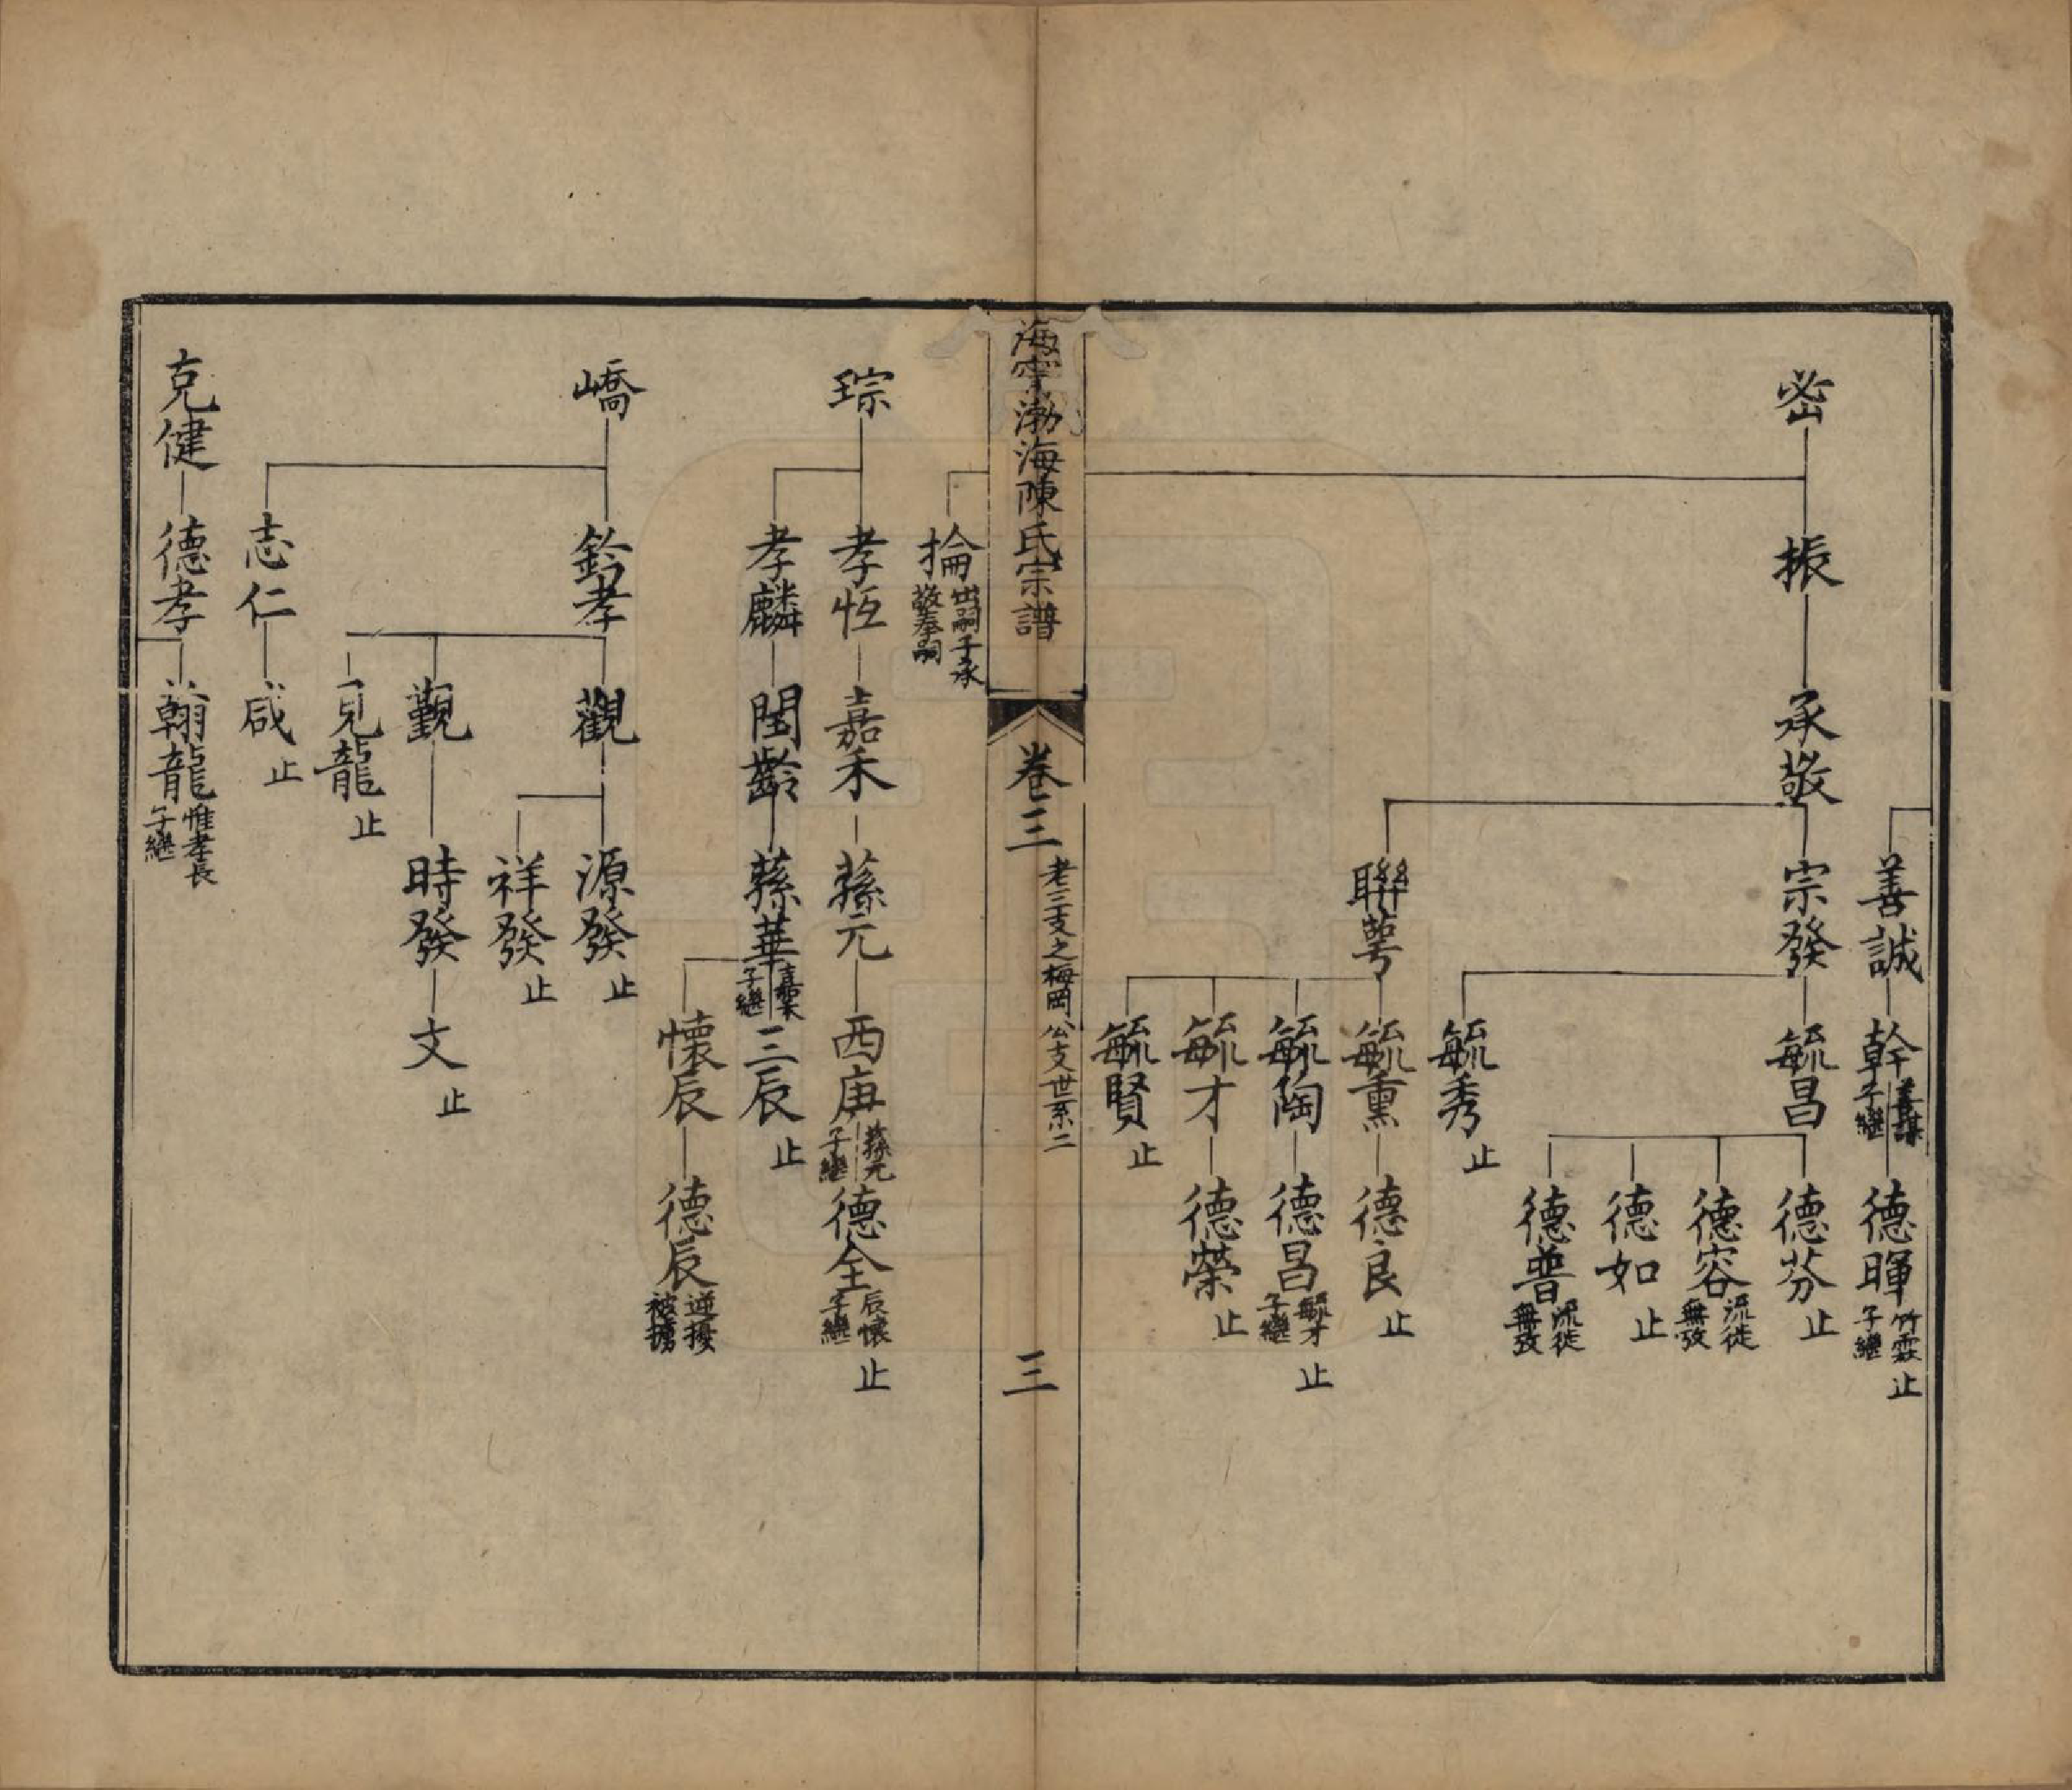 善誠
幹
子繼
德暉
竹霖
子繼
止
密
振
承敬
宗發
毓昌
德芬
止
德容
流徙
無攷
德如
止
德普
流徙
無攷
毓秀
止
聯萼
毓熏
德良
止
毓陶
德昌
毓才
子繼
止
毓才
德榮
止
毓賢
止
海寧渤海陳氏宗譜
卷三
老三支之梅岡公支世系二
三
掄
出嗣子承
敬奉嗣
琮
孝恆
嘉禾
蓀元
西庚
蓀元
子繼
德全
辰懷
子繼
止
孝麟
閏齡
蓀華
嘉禾
子繼
三辰
止
懷辰
德辰
逆擾
被擄
嶠
鈴孝
觀
源發
止
祥發
止
觀
時發
文
止
見龍
止
志仁
咸
止
克健
德孝
翰龍
惟孝長
子繼